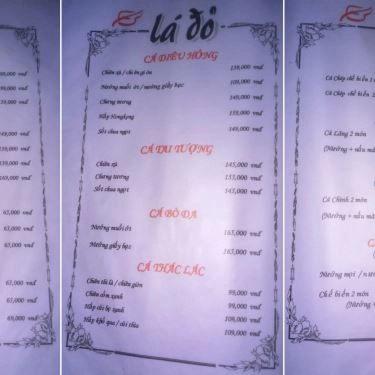 lá đỏ
CÁ DIÊU HỒNG
139,000 vnđ
Nướng muối ớt / nướng giấy bạc 109,000 vnđ
Chưng tương 149,000 vnđ
Hấp Hongkong 159,000 vnđ
Sốt chua ngọt 149,000 vnđ
CÁ TAI TƯỢNG
Chiên xù 145,000 vnđ
Chưng tương 155,000 vnđ
Sốt chua ngọt 145,000 vnđ
CÁ BÒ DA
Nướng muối ớt 165,000 vnđ
Nướng giấy bạc 165,000 vnđ
CÁ THÁC LÁC
Chiên thì là / chiên giòn 99,000 vnđ
Chiên cốm xanh 99,000 vnđ
Hấp cải bẹ xanh 109,000 vnđ
Hấp khổ qua / cải thìa 109,000 vnđ
149,000 vnđ
139,000 vnđ
139,000 vnđ
169,000 vnđ
65,000 vnđ
65,000 vnđ
65,000 vnđ
65,000 vnđ
69,000 vnđ
Cá Chép chế biến 2
Cá Lăng 2 món
(Nướng + nấu
Cá Chình 2 món
(Nướng + nấu
Nướng mọi /
Chế biến 2 món
(Nướng +